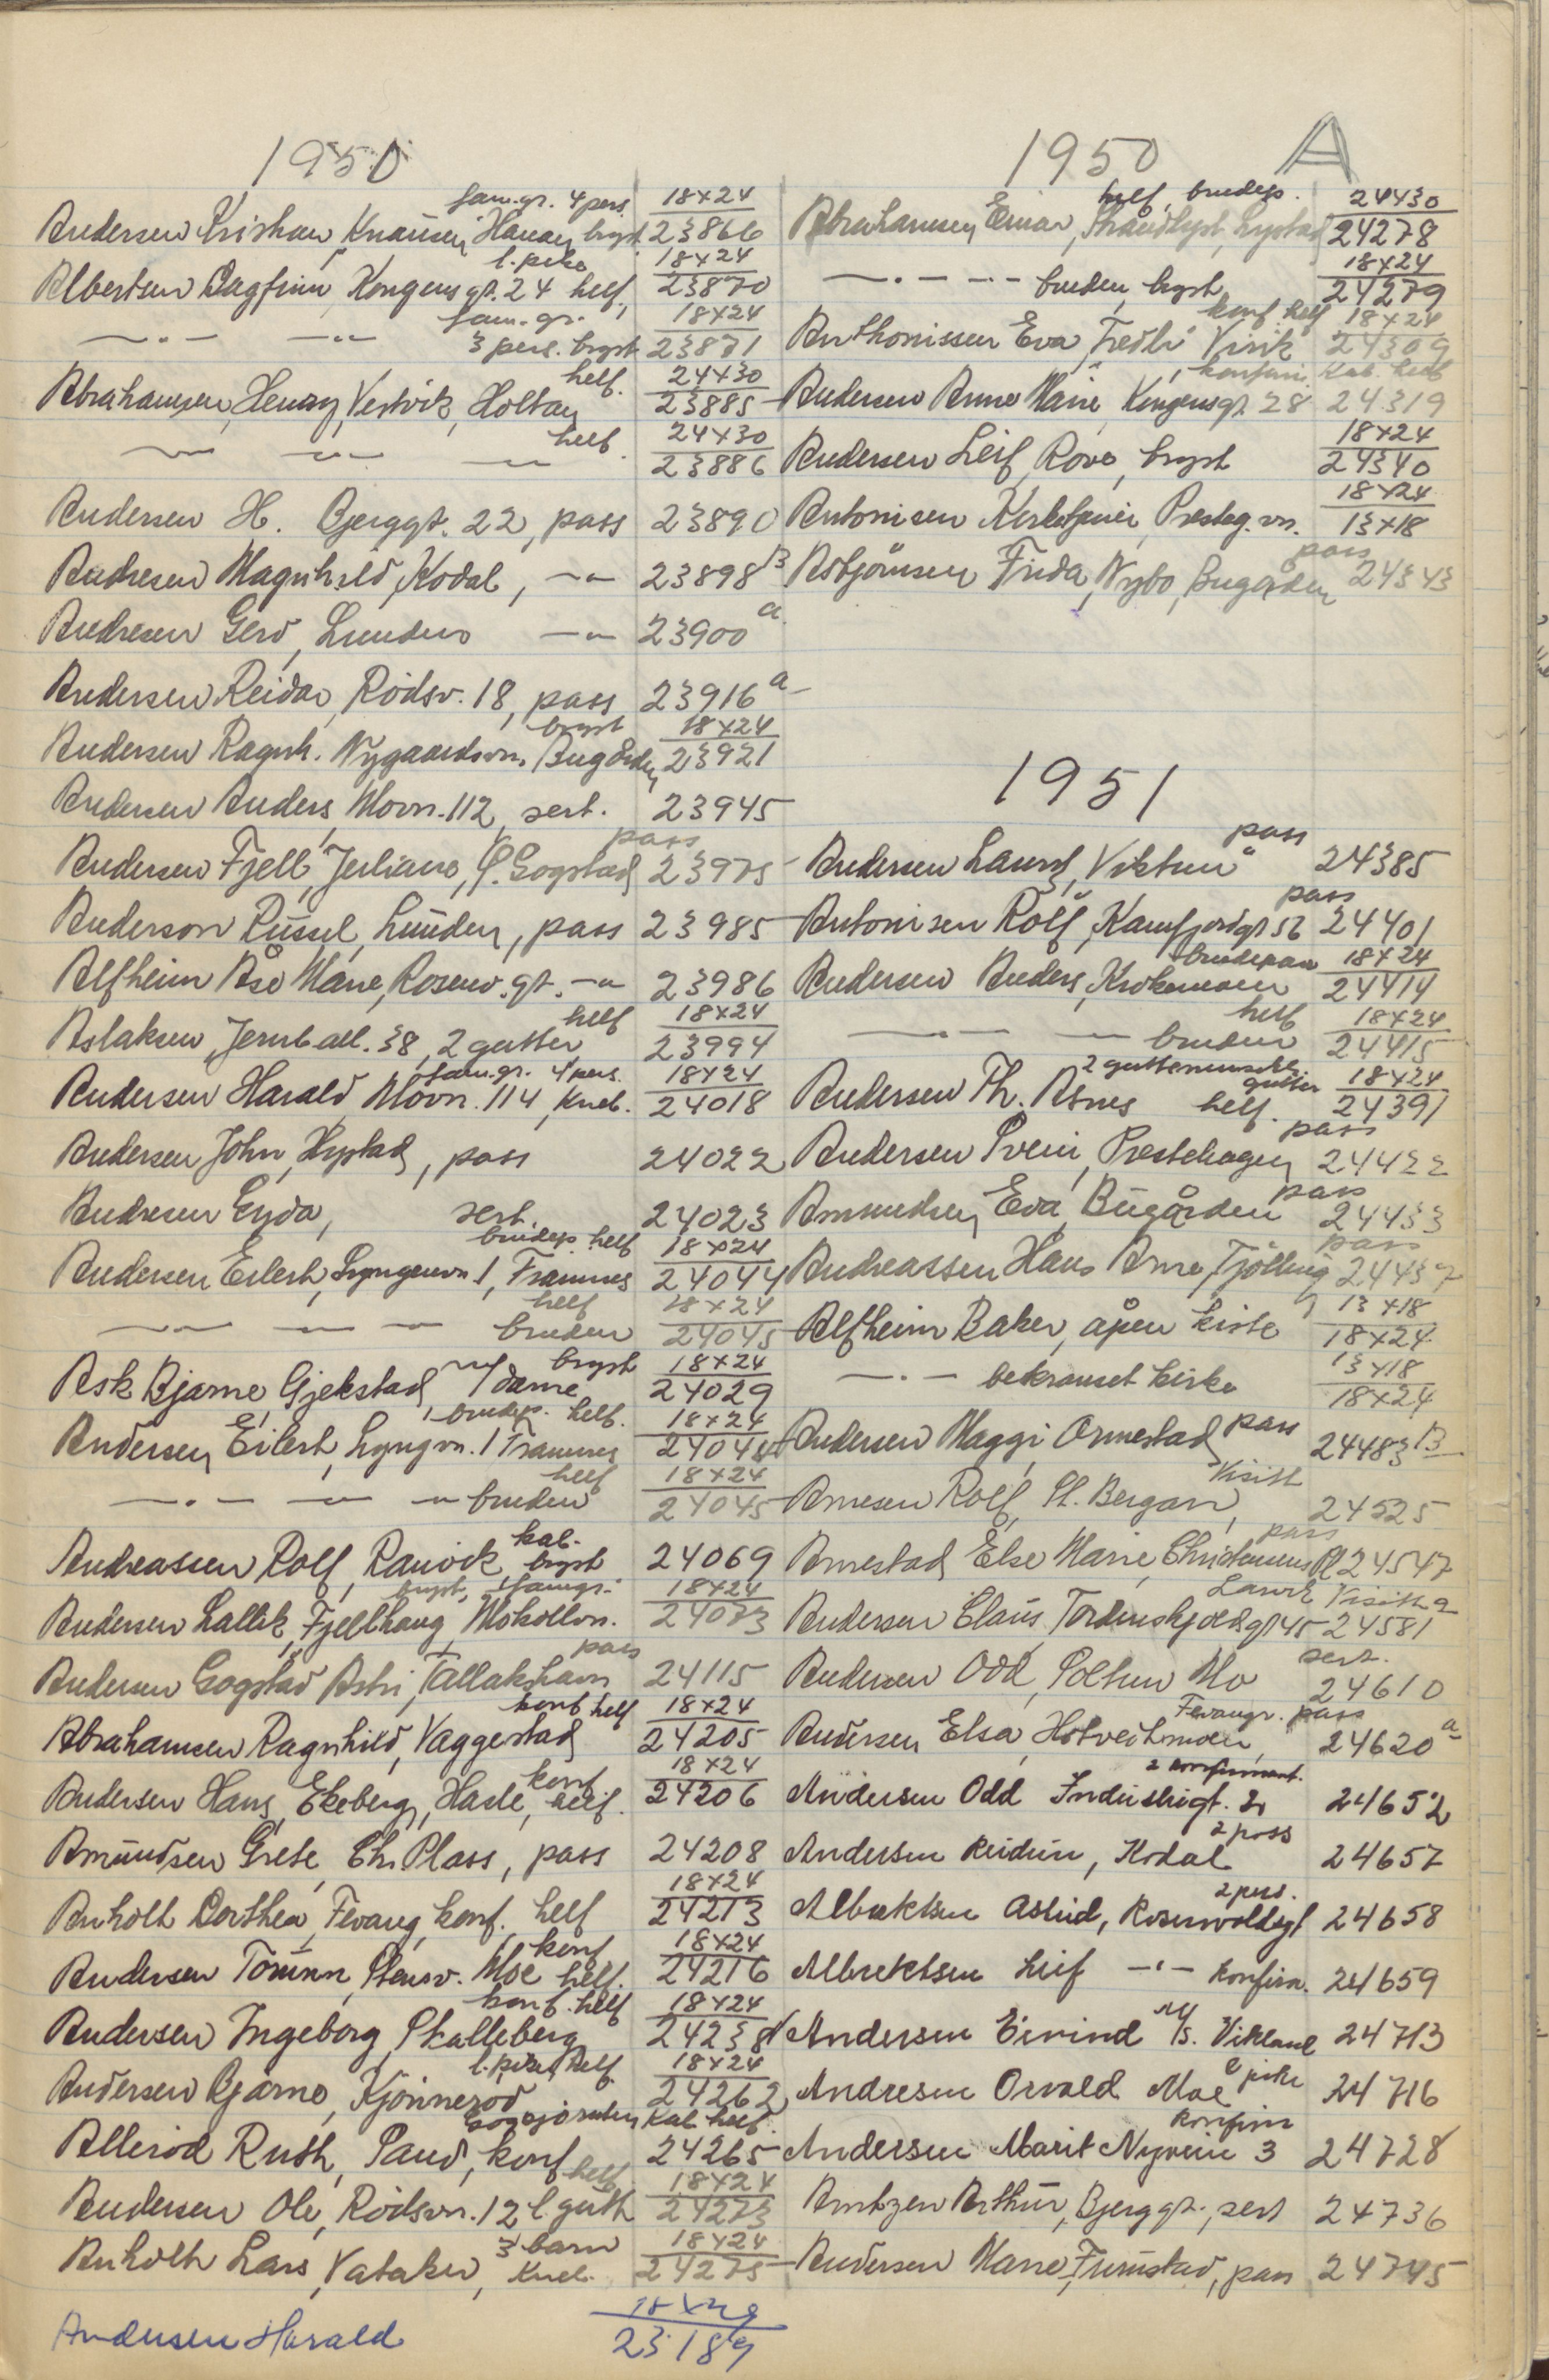 1950
fam.gr. 4 pers. 18x24
Andersen Kristian Knausen, Hauan bryst 23866
l. pike 18x24
Albertsen Dagfinn, Kongensgt. 24 helf. 23870
fam. gr. 18x24
—·— —"— 3 pers. bryst 23871
helf. 24x30
Abrahamsen, Henry, Vestvik, Holtan 23885
helf. 24x30
— —"— —"— 23886
Andersen H. Bjerggt. 22, pass 23890
Andresen Magnhild, Kodal, —"— 23898 B
Andresen Gerd, Lunden —"— 23900 a.
Andersen Reidar, Rödsv. 18, pass 23916 a
bryst 18x24
Andersen Ragnh. Nygaardsvn. Bugården 23921
Andersen Anders Movn. 112, sert. 23945
pass
Andersen Fjell, Juliane, Gogstad 23975
Anderson Russel, Lunden, pass 23985
Alfheim Åse Marie, Rosenv. gt. —"— 23986
helf 18x24
Aslaksen, Jernb.all. 38, 2 gutter, 23994
fam.gr. 4 pers. 18x24
Andersen Harald, Movn. 114, kneb. 24018
Andersen John, Hystad, pass 24022
Andresen Gyda, sert. 24023
brudep. helf 18x24
Andersen Eilert, Lyngveien 1, Framnes 24044
helf 18x24
— — — bruden 24045
bryst 18x24
Ask Bjarne, Gjekstad, m/dame 24029
brudep. helf. 18x24
Andersen Eilert, Lyngvn. 1 Framnes 24044
helf 18x24
—·— — —"— bruden 24045
kab.
Andreassen Rolf, Ranvik, bryst 24069
bryst, famgr. 18x24
Andersen Lallik, Fjellhaug, Mokollvn. 24073
pass
Andersen Gogstad Astri, Tallakshavn 24115
konf helf 18x24
Abrahamsen Ragnhild, Vaggestad 24205
konf 18x24
Andersen Hans, Ekeberg, Hasle, helf. 24206
Amundsen Grete, Chr. Plass, pass 24208
18x24
Anholt Dorthea, Fevang, konf. helf 24213
konf 18x24
Andersen Torunn, Stensv. Moe helf. 24216
konf. helf 18x24
Andersen Ingeborg, Skalleberg 24238
l. pike, helf 18x24
Andersen Bjarne, Kjönneröd 24262
Kab helf.
Alleröd Ruth, Sand, konf 24265
helf. 18x24
Andersen Ole, Rödsvn. 12 l. gutt 24273
3 barn 18x24
Anholt Lars, Vataker, kneb. 24275
Andersen Harald 23189
1950 A
helf, brudep. 24x30
Abrahamsen, Einar, Strandlyst, Lystad 24278
18x24
—·— — —"— bruden, bryst 24279
konf. helf 18x24
Anthonissen Eva, Fredli, Virik 24309
konfirm. Kab. helf
Andersen Anne Marie, Kongensgt. 28 24319
18x24
Andersen Leif, Rove, bryst 24340
18x24
Antonisen Presteg. vn. 13x18
pass
Asbjörnsen Frida, Nybo, Bugården 24343
1951
pass
Andersen Laura, 24385
pass
Antonisen Rolf, Kamfjordgt 56 24401
brudepar 18x24
Andersen Anders, Krokemoen 24414
helf 18x24
—·— — — bruden 24415
18x24
Andersen Th. Åsnes helf. 24391
pass
Andersen Svein, Prestehagen 24422
pass
Amundsen, Eva, Bugården 24433
pass
Andreassen Hans Arne, Tjölling 24437
13x18
Alfheim Baker, åpen kiste 18x24
13x18
—·— bekranset kiste 18x24
Andersen Maggi, Ormestad pass 24483 B
Visitt
Arnesen Rolf, St. Bergan, 24525
pass
Arnestad Else Marie, Christensens Pl 24547
Larvik Visitt a
Andersen Claus, Tordenskjoldsgt 45 24581
sert.
Andersen Odd, Soltun Mo 24610
Fevangv. pass
Andersen Elsa, Hotvedtmoen, 24620 a
2 konfirmant.
Andersen Odd Industrigt. 24652
2 pass
Andersen Reidun, Kodal 24657
2 pers.
Albrektsen Astrid, Rosenvoldsgt 24658
Albrektsen Leif —·— konfirm. 24659
Andersen Eivind M/s. Vikland 24713
pike
Andresen Orvald Moe 24716
konfirm
Andersen Marit Nyveien 3 24728
Arntzen Arthur, Bjerggt., sert 24736
Andersen Marie, Furustad, pass 24745